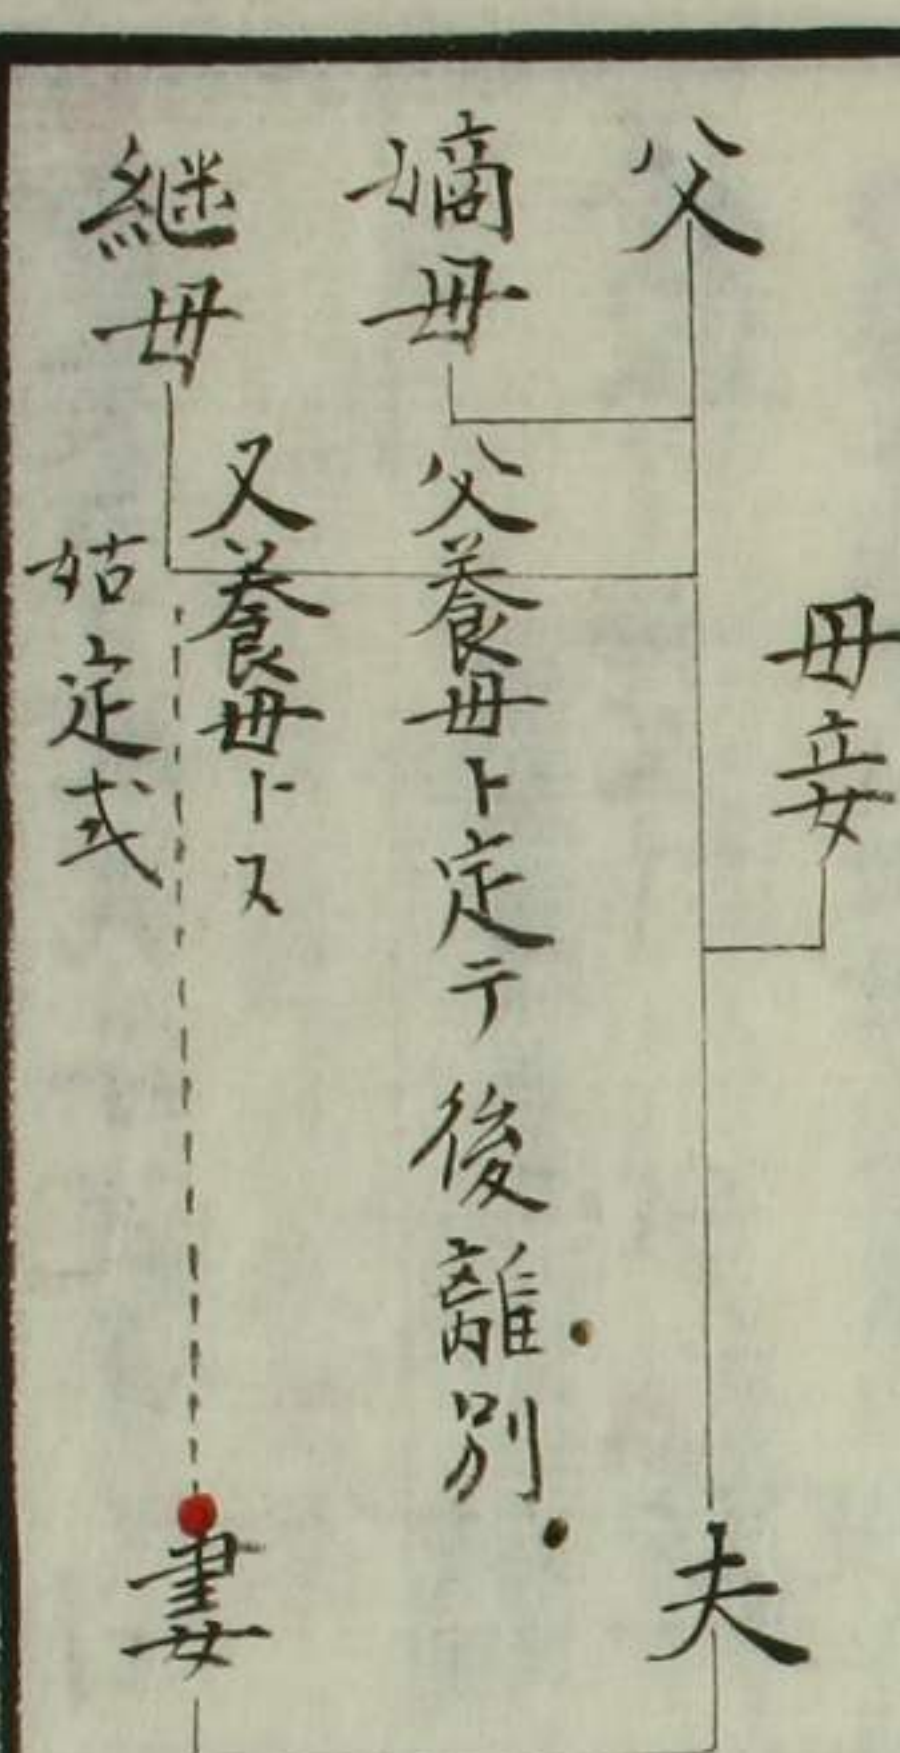 母妾
父
夫
嫡母
父養母ト定テ後離別
継母
又養母トス
姑定式
妻